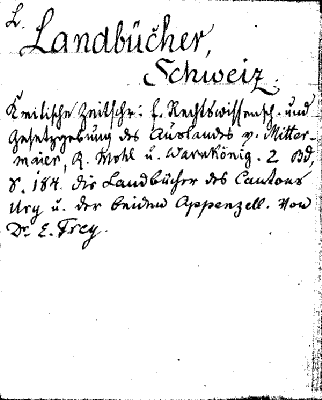 L.
Landbücher,
Schweiz.
Kritische Zeitschr: f. Rechtswissensch. und
Gesetzgebung des Auslandes v. Mitter-
maier, R. Mohl u. Warnkönig. 2 Bd,
S. 184. die Landbücher des Cantons
Ury u. der beiden Appenzell. Von
Dr. E. Frey.